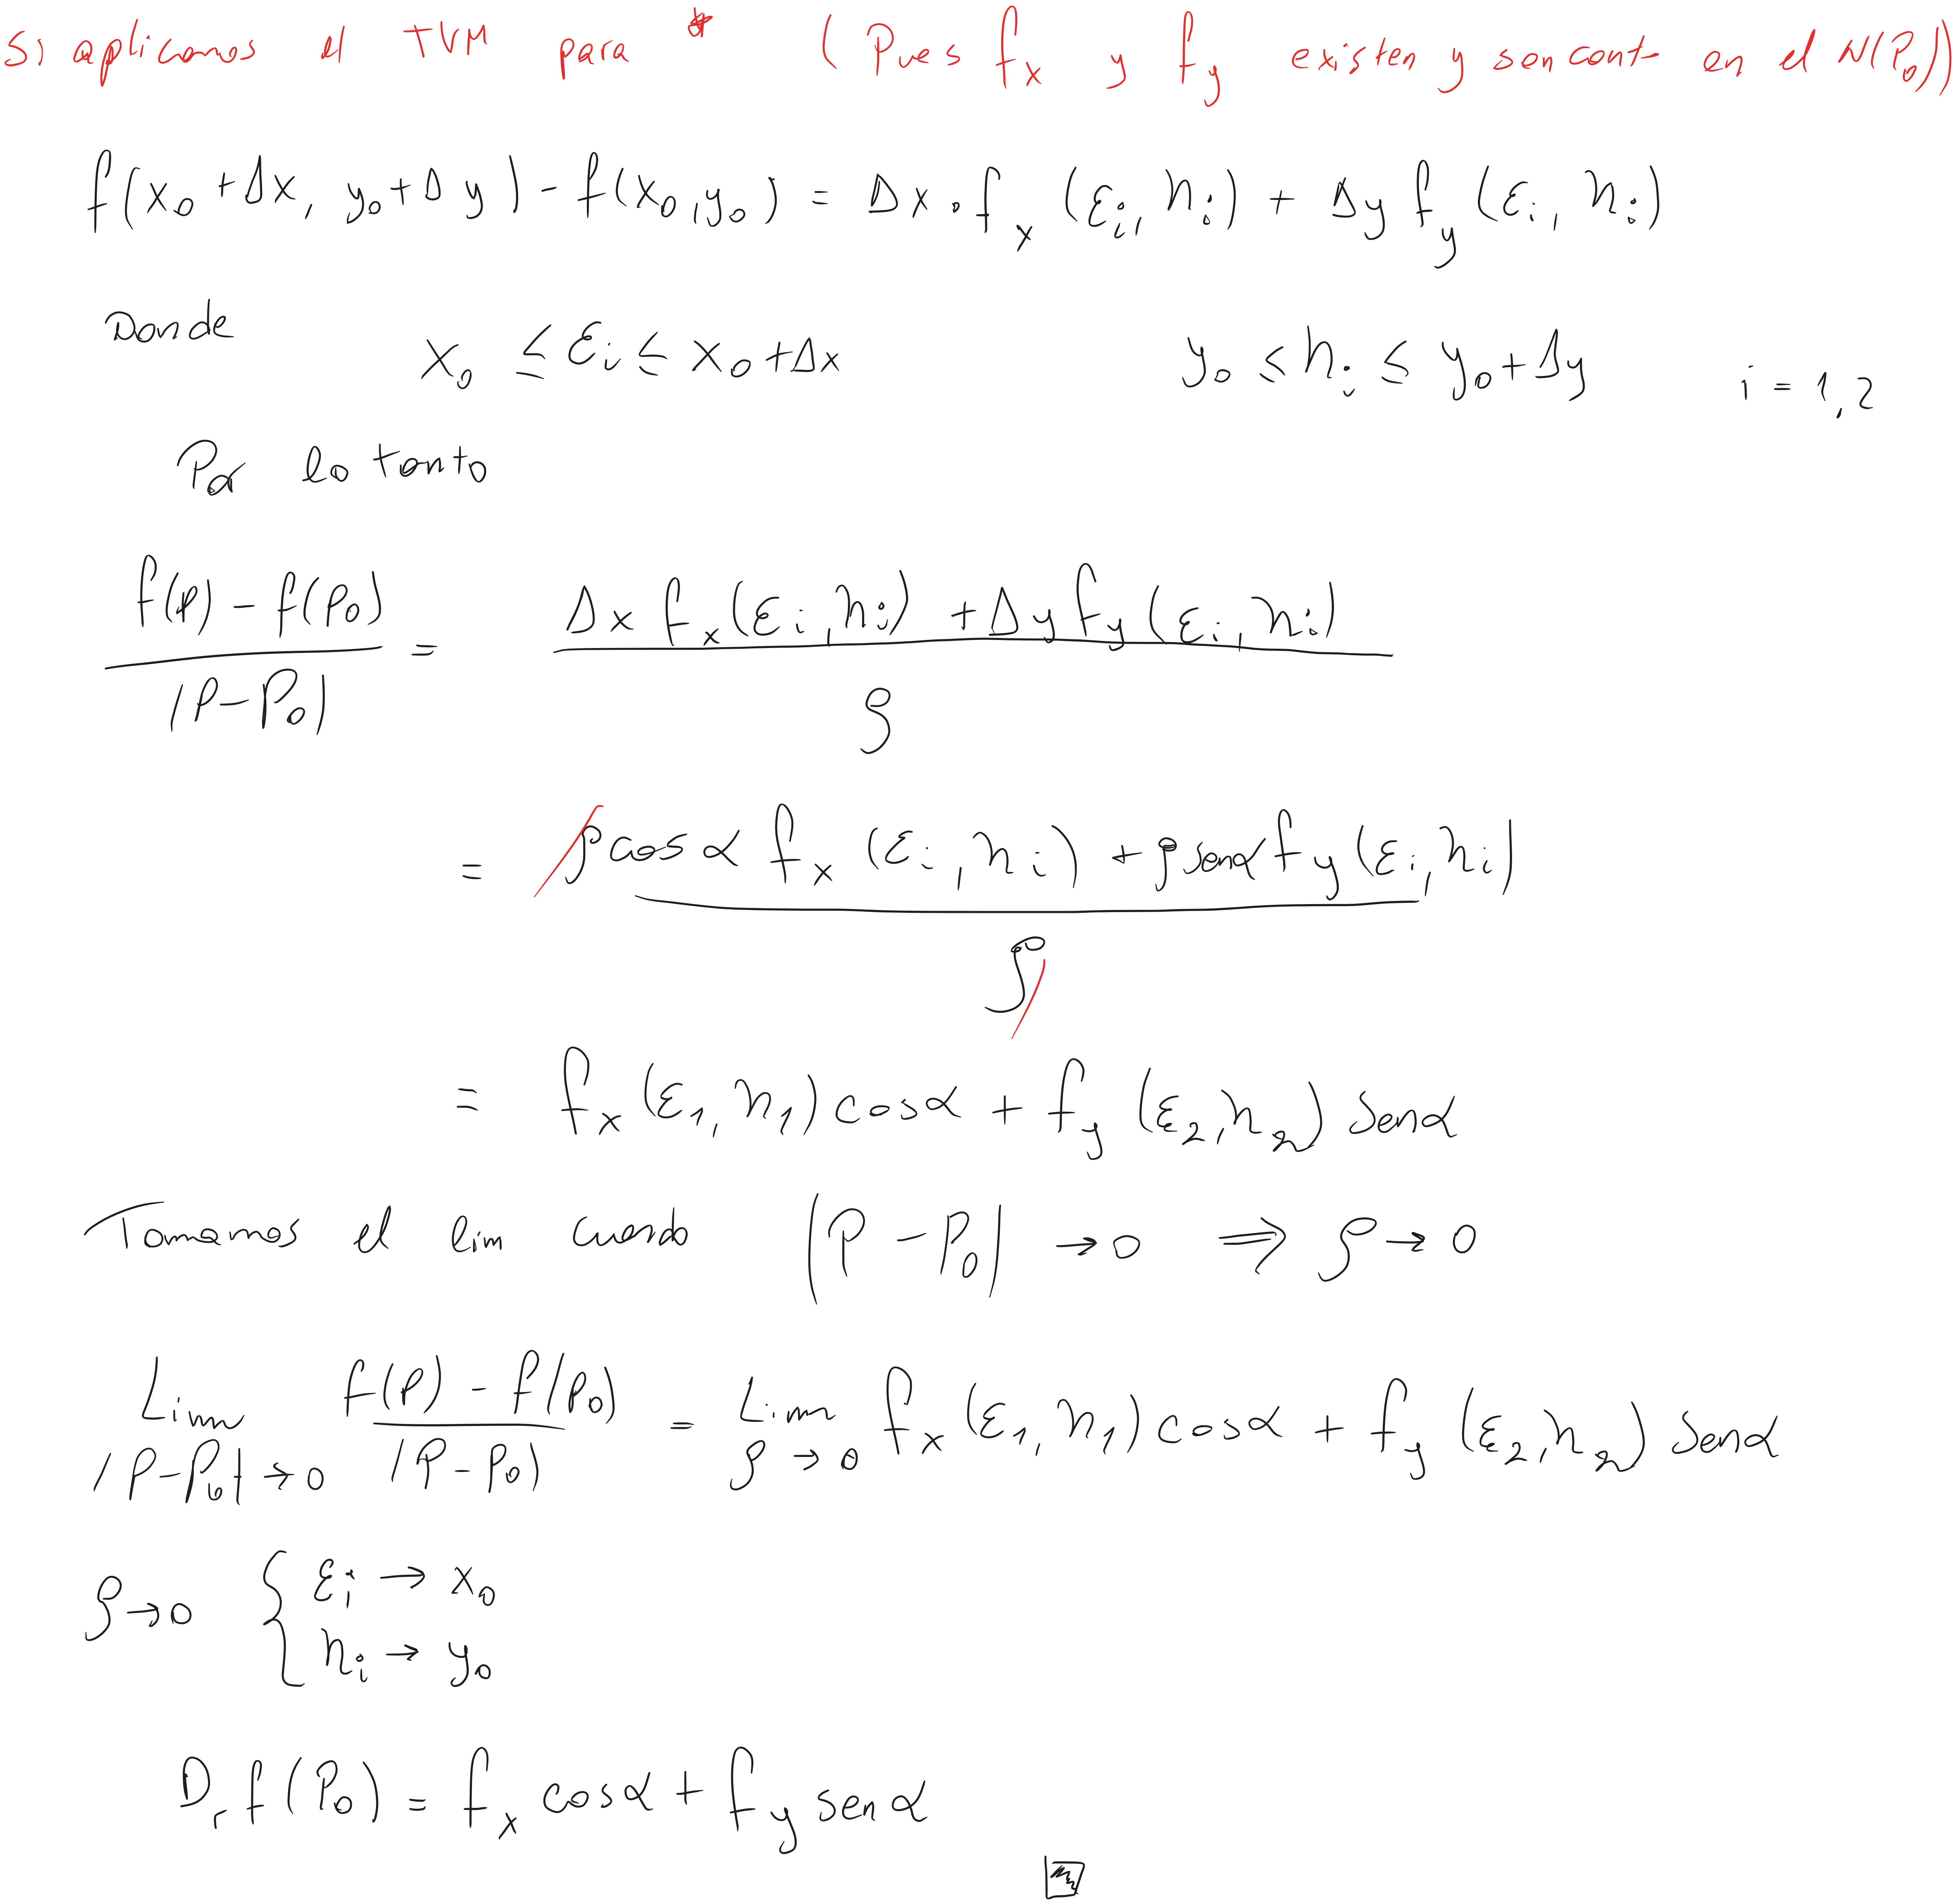 Si aplicamos el TVM para * ( Pues fx y fy existen y son cont en el N(P₀))
f(x₀+Δx, y₀+Δy) - f(x₀,y₀) = Δx.fx (εi, ηi) + Δy fy (εi, ηi)
Donde x₀ ≤ εi ≤ x₀+Δx y₀ ≤ ηi ≤ y₀+Δy i = 1,2
Por lo tanto
f(P) - f(P₀) / |P-P₀| = Δx fx(εi, ηi) + Δy fy(εi, ηi) / ρ
= ρ cos α fx (εi, ηi) + ρ sen α fy (εi, ηi) / ρ
= fx (ε₁, η₁) cos α + fy (ε₂, η₂) sen α
Tomamos el lim cuando |P - P₀| → 0 ⇒ ρ → 0
Lim |P-P₀| → 0 f(P) - f(P₀) / |P-P₀| = Lim ρ → 0 fx (ε₁, η₁) cos α + fy (ε₂, η₂) sen α
ρ → 0 { εi → x₀
ηi → y₀
Dr f(P₀) = fx cos α + fy sen α